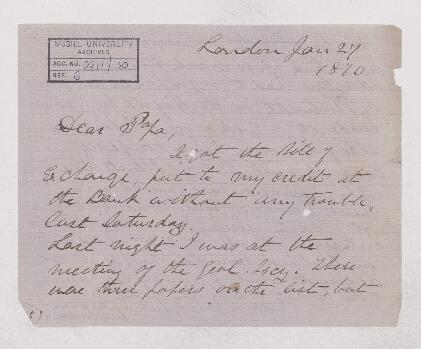 McGILL UNIVERSITY
ARCHIVES
ACC. NO.
REF. 6
London Jan 27
1870
Dear Papa,
I got the Bill of
Exchange, put to my credit at
the Bank without any trouble,
last Saturday.
Last night I was at the
meeting of the Geol. Socy. There
were three papers on the list, but